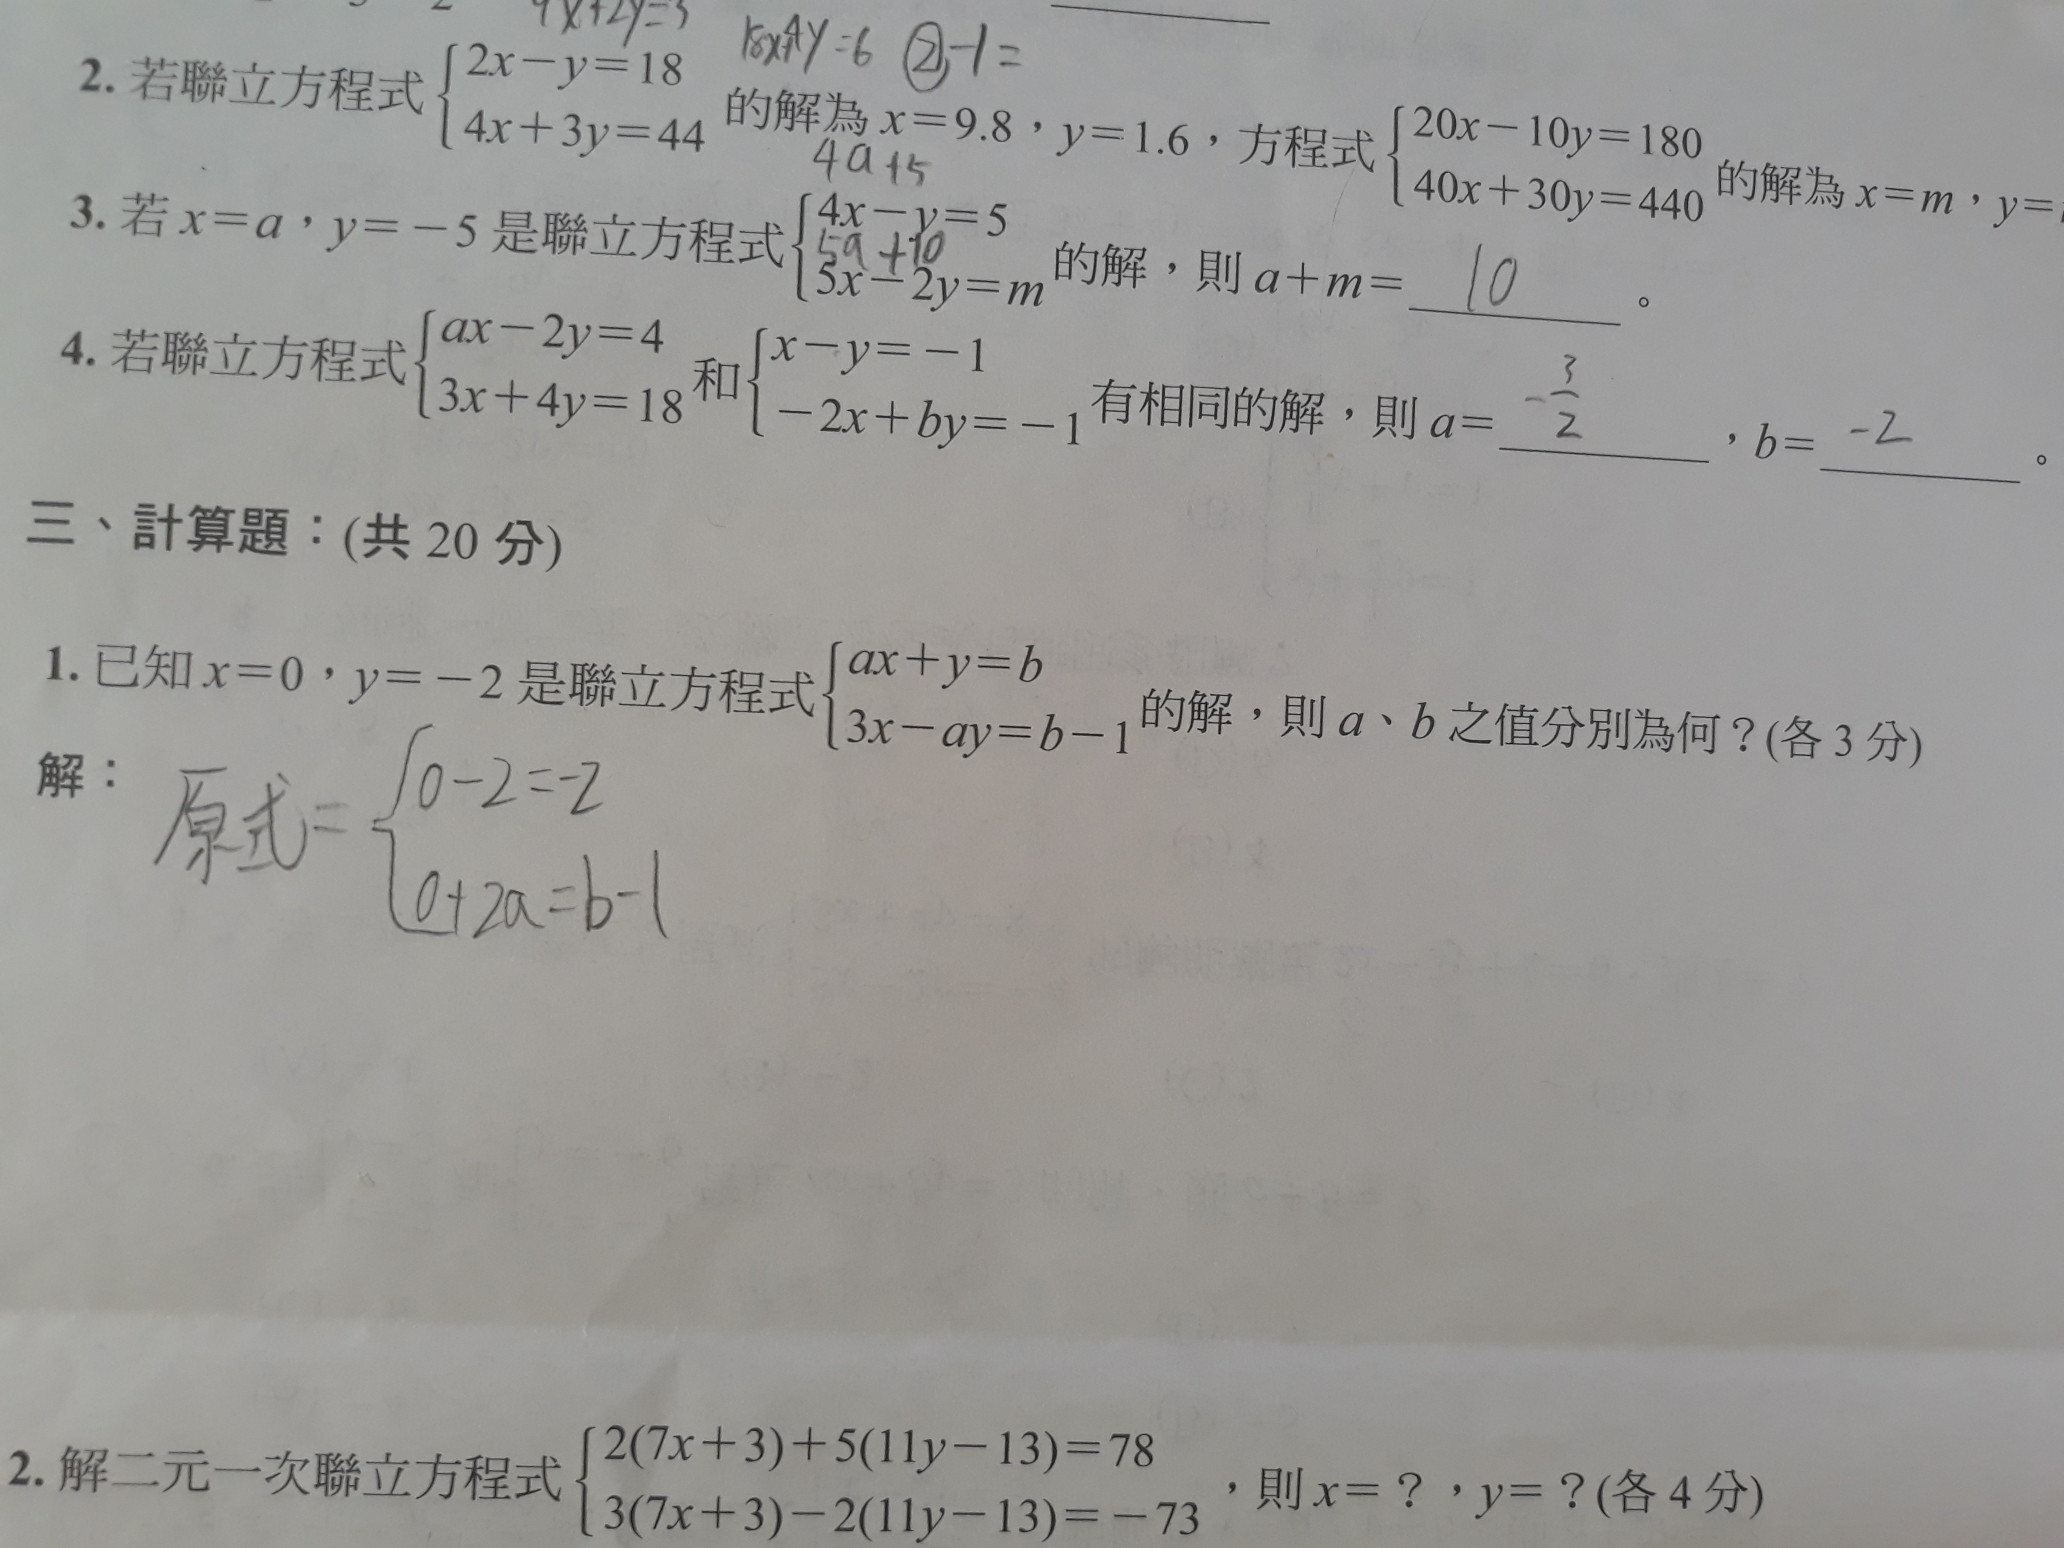 4x+2y=3 15x+4y=6 ②-1=
2. 若聯立方程式{2x-y=18 4x+3y=44 的解為 x=9.8，y=1.6，方程式{20x-10y=180 40x+30y=440 的解為 x=m，y=
4a+5
3. 若 x=a，y=-5 是聯立方程式{4x-y=5 5x-2y=m 的解，則 a+m= 10 。
5a+10
4. 若聯立方程式{ax-2y=4 3x+4y=18 和{x-y=-1 -2x+by=-1 有相同的解，則 a= -3/2 ，b= -2 。
三、計算題：(共 20 分)
1. 已知 x=0，y=-2 是聯立方程式{ax+y=b 3x-ay=b-1 的解，則 a、b 之值分別為何？(各 3 分)
解：
原式= {0-2=-2
0+2a=b-1
2. 解二元一次聯立方程式{2(7x+3)+5(11y-13)=78 3(7x+3)-2(11y-13)=-73 ，則 x=？，y=？(各 4 分)